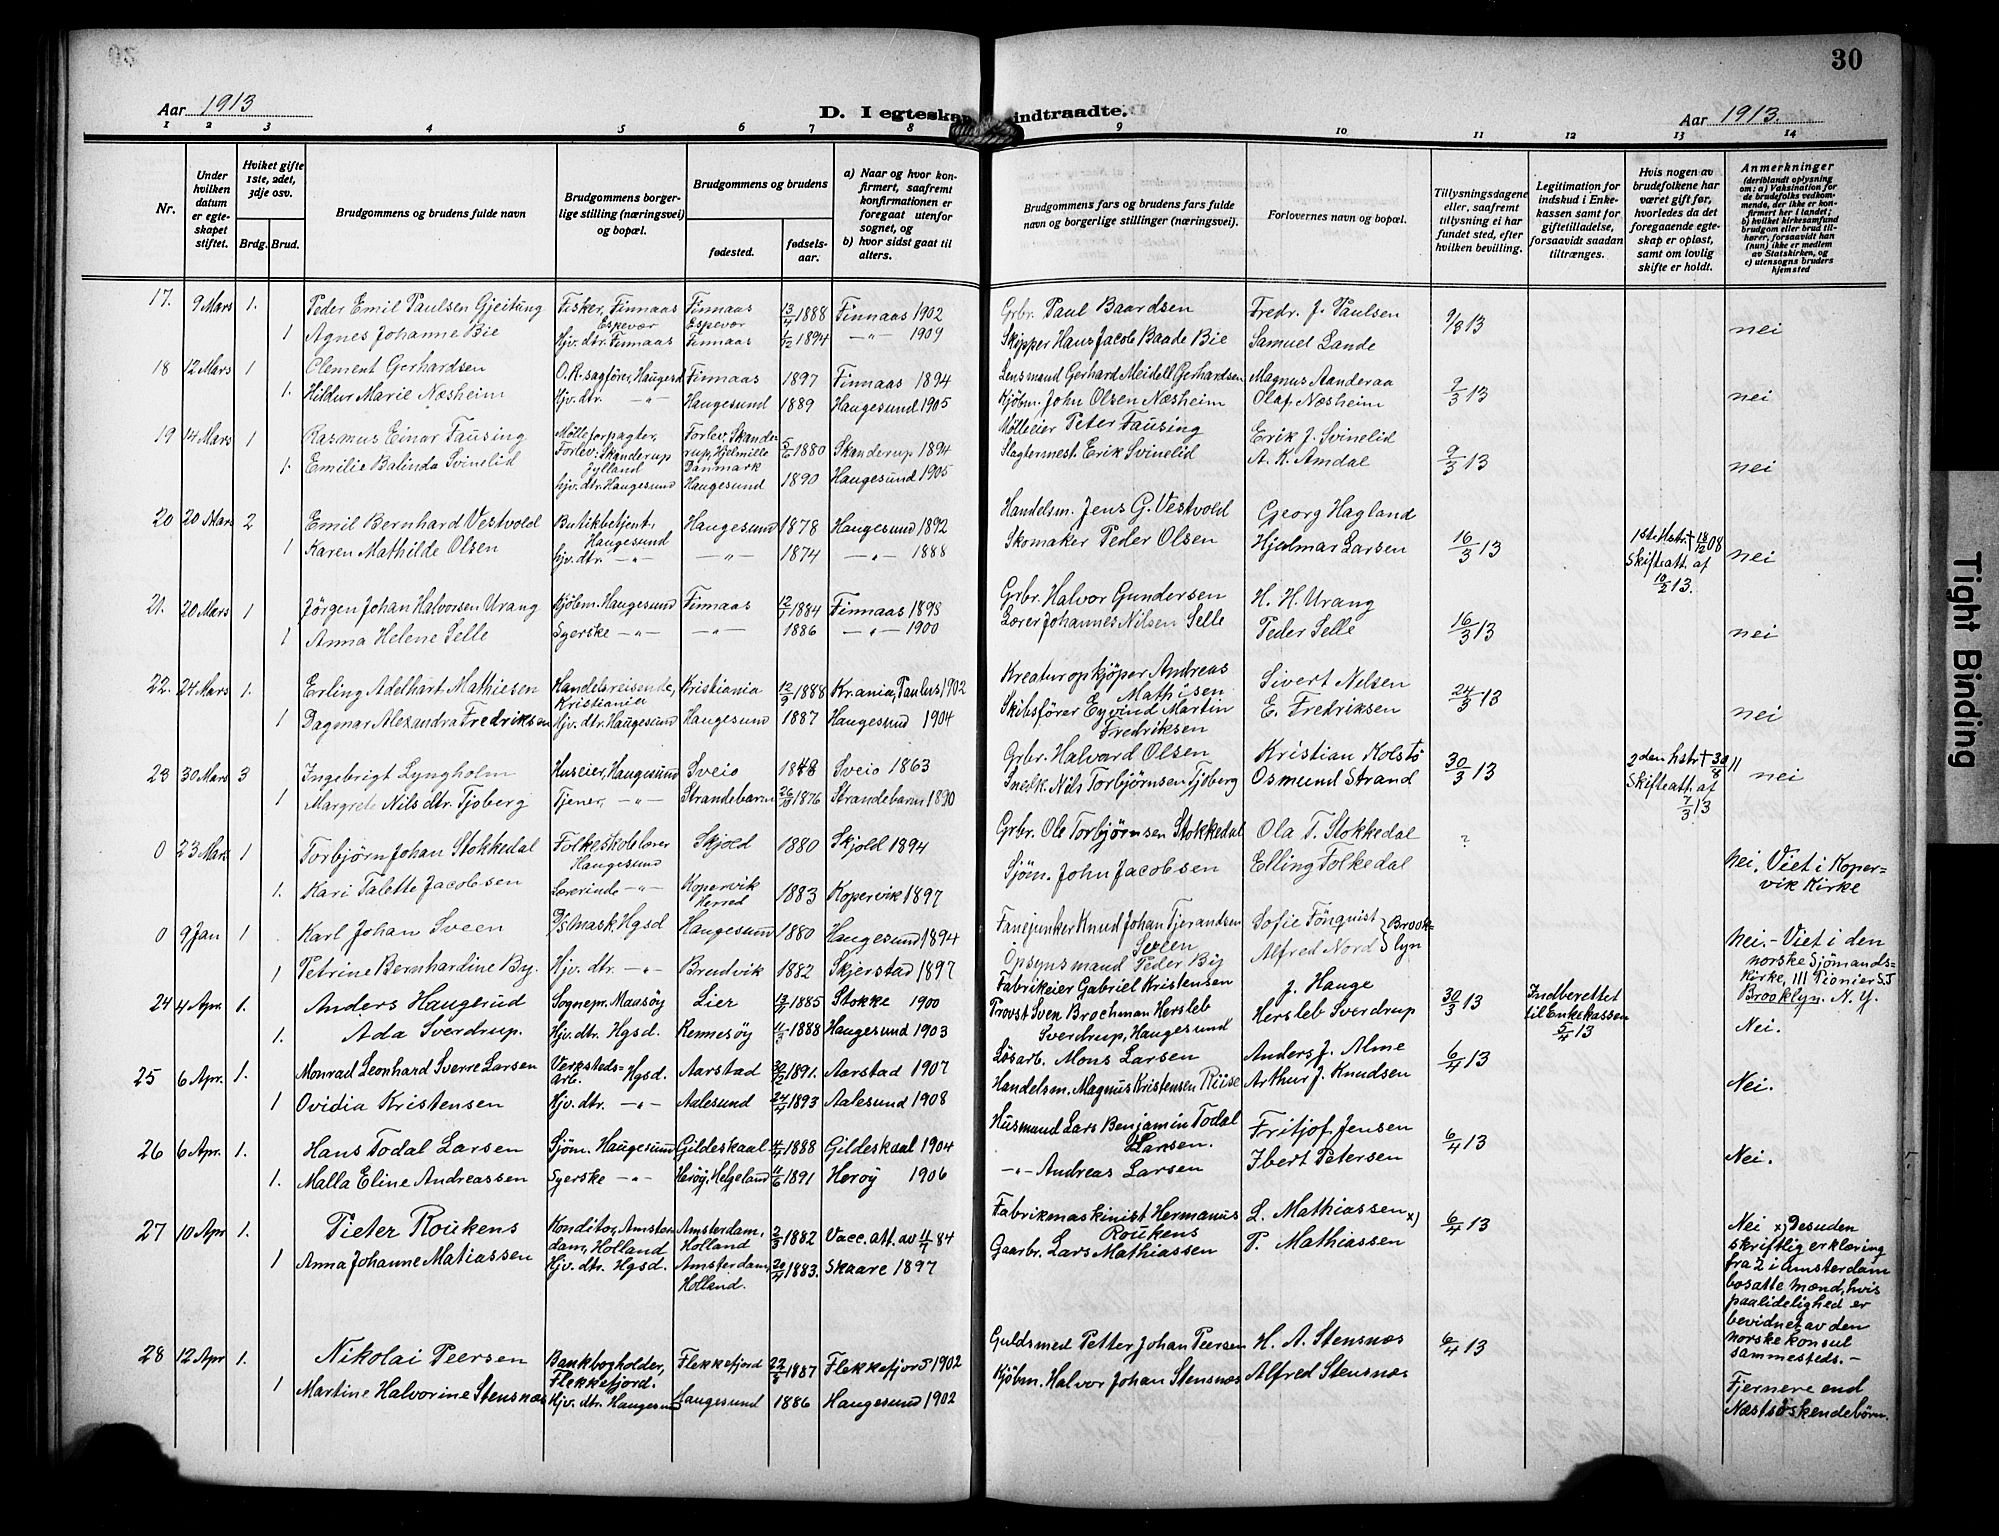 30
Aar 1913
D. I egteskap indtraadte.
Aar 1913.
1 2 3 4 5 6 7 8 9 10 11 12 13 14
Nr.
Under hvilken datum er egteskapet stiftet.
Hvilket gifte 1ste, 2det, 3dje osv.
Brdg. Brud.
Brudgommens og brudens fulde navn
Brudgommens borgerlige stilling (næringsvei) og bopæl.
Brudgommens og brudens
fødested.
fødselsaar.
a) Naar og hvor konfirmert, saafremt konfirmationen er foregaat utenfor sognet, og
b) hvor sidst gaat til alters.
Brudgommens fars og brudens fars fulde navn og borgerlige stillinger (næringsvei).
Forlovernes navn og bopæl.
Tillysningsdagene eller, saafremt tillysning ei har fundet sted, efter hvilken bevilling.
Legitimation for indskud i Enkekassen samt for giftetilladelse, forsaavidt saadan tiltrænges.
Hvis nogen av brudefolkene har været gift før, hvorledes da det foregaaende egteskap er opløst, samt om lovlig skifte er holdt.
Anmerkninger
(deriblandt oplysning om: a) Vaksination for de brudefolks vedkommende, der ikke er konfirmert her i landet; b) hvilket kirkesamfund brudgom eller brud tilhører, forsaavidt han (hun) ikke er medlem av Statskirken, og c) utensogns bruders hjemsted
17. 9 Mars 1. Peder Emil Paulsen Gjeitung Fisker, Finnaas Finnaas 13/4 1888 Finnaas 1902 Grbr. Paul Baardsen Fredr. J. Paulsen 9/3 13
Espevær Espevær
1 Agnes Johanne Bie Hjv. dtr. Finnaas Finnaas 1/12 1894 —"— 1909 Skipper Hans Jacob Baade Bie Samuel Lande nei
18 12 Mars 1 Clement Gerhardsen O.R. sagfører, Haugesd Finnaas 1897 Finnaas 1894 Lensmand Gerhard Meidell Gerhardsen Magnus Aanderaa 9/3 13
1. Hildur Marie Næsheim Hjv. dtr. —"— Haugesund 1889 Haugesund 1905 Kjøbm. John Olsen Næsheim Olaf Næsheim nei
19 14 Mars 1 Rasmus Einar Fausing Mølleforpagter, Forlev, Skanderup Jylland Forlev, Skanderup, Hjelmslle Danmark 5/6 1880 Skanderup 1894 Mølleeier Peter Fausing Erik J. Svinelid 9/3 13
1. Emilie Balinda Svinelid Hjv. dtr. Haugesund Haugesund 1890 Haugesund 1905 Slagtermest. Erik Svinelid A. K. Amdal nei
20 20 Mars 2 Emil Bernhard Vestvold Butikbetjent, Haugesund Haugesund 1878 Haugesund 1892 Handelsm. Jens G. Vestvold Georg Hagland 16/3 13 1ste Hstr. † 18/12 08
1 Karen Mathilde Olsen Hjv. dtr. —"— —"— 1874 —"— 1888 Skomaker Peder Olsen Hjalmar Larsen Skifteatt. af 10/2 13. nei
21. 20 Mars 1 Jørgen Johan Halvorsen Urang Kjøbm. Haugesund Finnaas 12/7 1884 Finnaas 1898 Grbr. Halvor Gundersen H. H. Urang 16/3 13
1 Anna Helene Selle Syerske —"— —"— 1886 —"— 1900 Lærer Johannes Nilsen Selle Peder Selle nei
22. 24 Mars 1. Erling Adelhart Mathiesen Handelsreisende, Kristiania Kristiania 12/9 1888 Kr.ania, Paulus 1902 Kreaturopkjøper Andreas Mathisen Sivert Nilsen 24/3 13
1 Dagmar Alexandra Fredriksen Hjv. dtr. Haugesund Haugesund 1887 Haugesund 1904 Skibsfører Eyvind Martin Fredriksen E. Fredriksen nei
23 30 Mars 3 Ingebrigt Lyngholm Huseier, Haugesund Sveio 1848 Sveio 1863 Grbr. Halvard Olsen Kristian Kolstø 30/3 13 2den hstr. † 30/8 11
1 Margrete Nils dtr. Tjoberg Tjener, —"— Strandebarm 26/10 1876 Strandebarm 1890 Snedk. Nils Torbjørnsen Tjoberg Osmund Strand Skifteatt. af 7/3 13 nei
0 23 Mars 1 Torbjørn Johan Stokkedal Folkeskolelærer Haugesund Skjold 1880 Skjold 1894 Grbr. Ole Torbjørnsen Stokkedal Ola T. Stokkedal ?
1. Kari Talette Jacobsen Lærerinde —"— Kopervik Herred 1883 Kopervik 1897 Sjøm. John Jacobsen Elling Folkedal Nei. Viet i Kopervik Kirke
0 9 Jan 1 Karl Johan Sveen D/S Mask. Hgsd Haugesund 1880 Haugesund 1894 Fanejunker Knud Johan Tjerandsen Sveen Sofie Fönquist } Brook-
1 Petrine Bernhardine By. Hjv. dtr. —"— Brudvik 1882 Skjerstad 1897 Opsynsmand Peder By Alfred Nord } lyn Nei. - Viet i den norske Sjømands-Kirke, 111 Pionier S.T Brooklyn. N. Y.
24 4 Apr. 1. Anders Haugerud Sognepr. Maasøy Lier 13/11 1885 Stokke 1900 Fabrikeier Gabriel Kristensen J. Hauge 30/3 13 Indberettet til Enkekassen 5/4 13
1. Ada Sverdrup. Hjv. dtr. Hgsd. Rennesøy 11/3 1888 Haugesund 1903 Provst Sven Brochman Hersleb Sverdrup, Haugesund Hersleb Sverdrup Nei.
25 6 Apr. 1. Monrad Leonhard Sverre Larsen Verksteds-arb. Hgsd. Aarstad 30/12 1891. Aarstad 1907 Løsarb. Mons Larsen Anders J. Alme 6/4 13
1 Ovidia Kristensen Hjv. dtr. —"— Aalesund 24/4 1893 Aalesund 1908 Handelsm. Magnus Kristensen Riise Arthur J. Knudsen Nei.
26 6 Apr. 1. Hans Todal Larsen Sjøm. Haugesund Gildeskaal 1888 Gildeskaal 1904 Husmand Lars Benjamin Todal Larsen. Fritjof Jensen 6/4 13
1. Malla Eline Andreassen Syerske —"— Herøy, Helgeland 11/6 1891 Herøy 1906 —"— Andreas Larsen Ibert Petersen Nei.
27 10 Apr 1. Pieter Roukens Konditor, Amsterdam, Holland Amsterdam, Holland 2/3 1882 Vacc. att. av 11/7 84 Fabrikmaskinist Hermanus Roukens L. Mathiassen x) 6/4 13
1 Anna Johanne Matiassen Hjv. dtr. Hgsd. Amsterdam, Holland. 20/4 1883. Skaare 1897 Gaarbr. Lars Mathiassen P. Mathiassen
Nei x) Desuden skriftlig erklæring fra 2 i Amsterdam bosatte mænd, hvis paalidelighed er bevidnet av den norske konsul sammesteds. -
28 12 Apr 1. Nikolai Peersen Bankbogholder, Flekkefjord. Flekkefjord 22/5 1887 Flekkefjord 1902 Guldsmed Petter Johan Peersen H. A. Stensnæs 6/4 13
1 Martine Halvorine Stensnæs Hjv. dtr. Haugesund Haugesund 1886 Haugesund 1902 Kjøbm. Halvor Johan Stensnæs Alfred Stensnæs Fjernere end Næstsøskendebørn.
Tight Binding